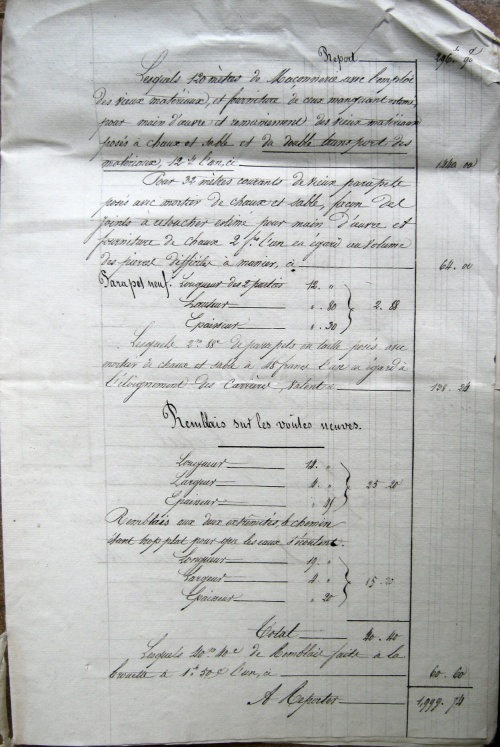 Report 296. 90
Lesquels 120 mètres de Maçonnerie avec l'emploi
des vieux matériaux, et fourniture de ceux manquant estimé
pour main d'œuvre et remaniement des vieux matériaux
posés à chaux et sable et du double transport des
matériaux, 12 f l'un, à 1440 00
Pour 32 mètres courants de vieux parapets
posés avec mortier de chaux et sable, façon des
joints à rebacher estimé pour main d'œuvre et
fourniture de chaux 2 frs l'un eu égard au volume
des pierres difficile à manier, à 64. 00
Parapet neuf. Longueur des 2 parties 12. "
Hauteur " . 80 2. 88
Epaisseur " . 30
Lesquels 2m 88c de parapets en taille posés avec
mortier de chaux et sable à 48 francs l'un eu égard à
l'éloignement des Carrière, valent 138. 24
Remblais sur les voûtes neuves.
Longueur 14. "
Largeur 4. " 25 . 20
Epaisseur " . 45
Remblais aux deux extrémités, le chemin
étant trop plat pour que les eaux s'écoulent.
Longueur 19. "
Largeur 4. " 15 . 20
Epaisseur " . 20
Total 40 . 40
Lesquels 40m 40c de Remblais faits à la
brouette à 1f 50c l'un, à 60. 60
A Reporter 1,999. 74